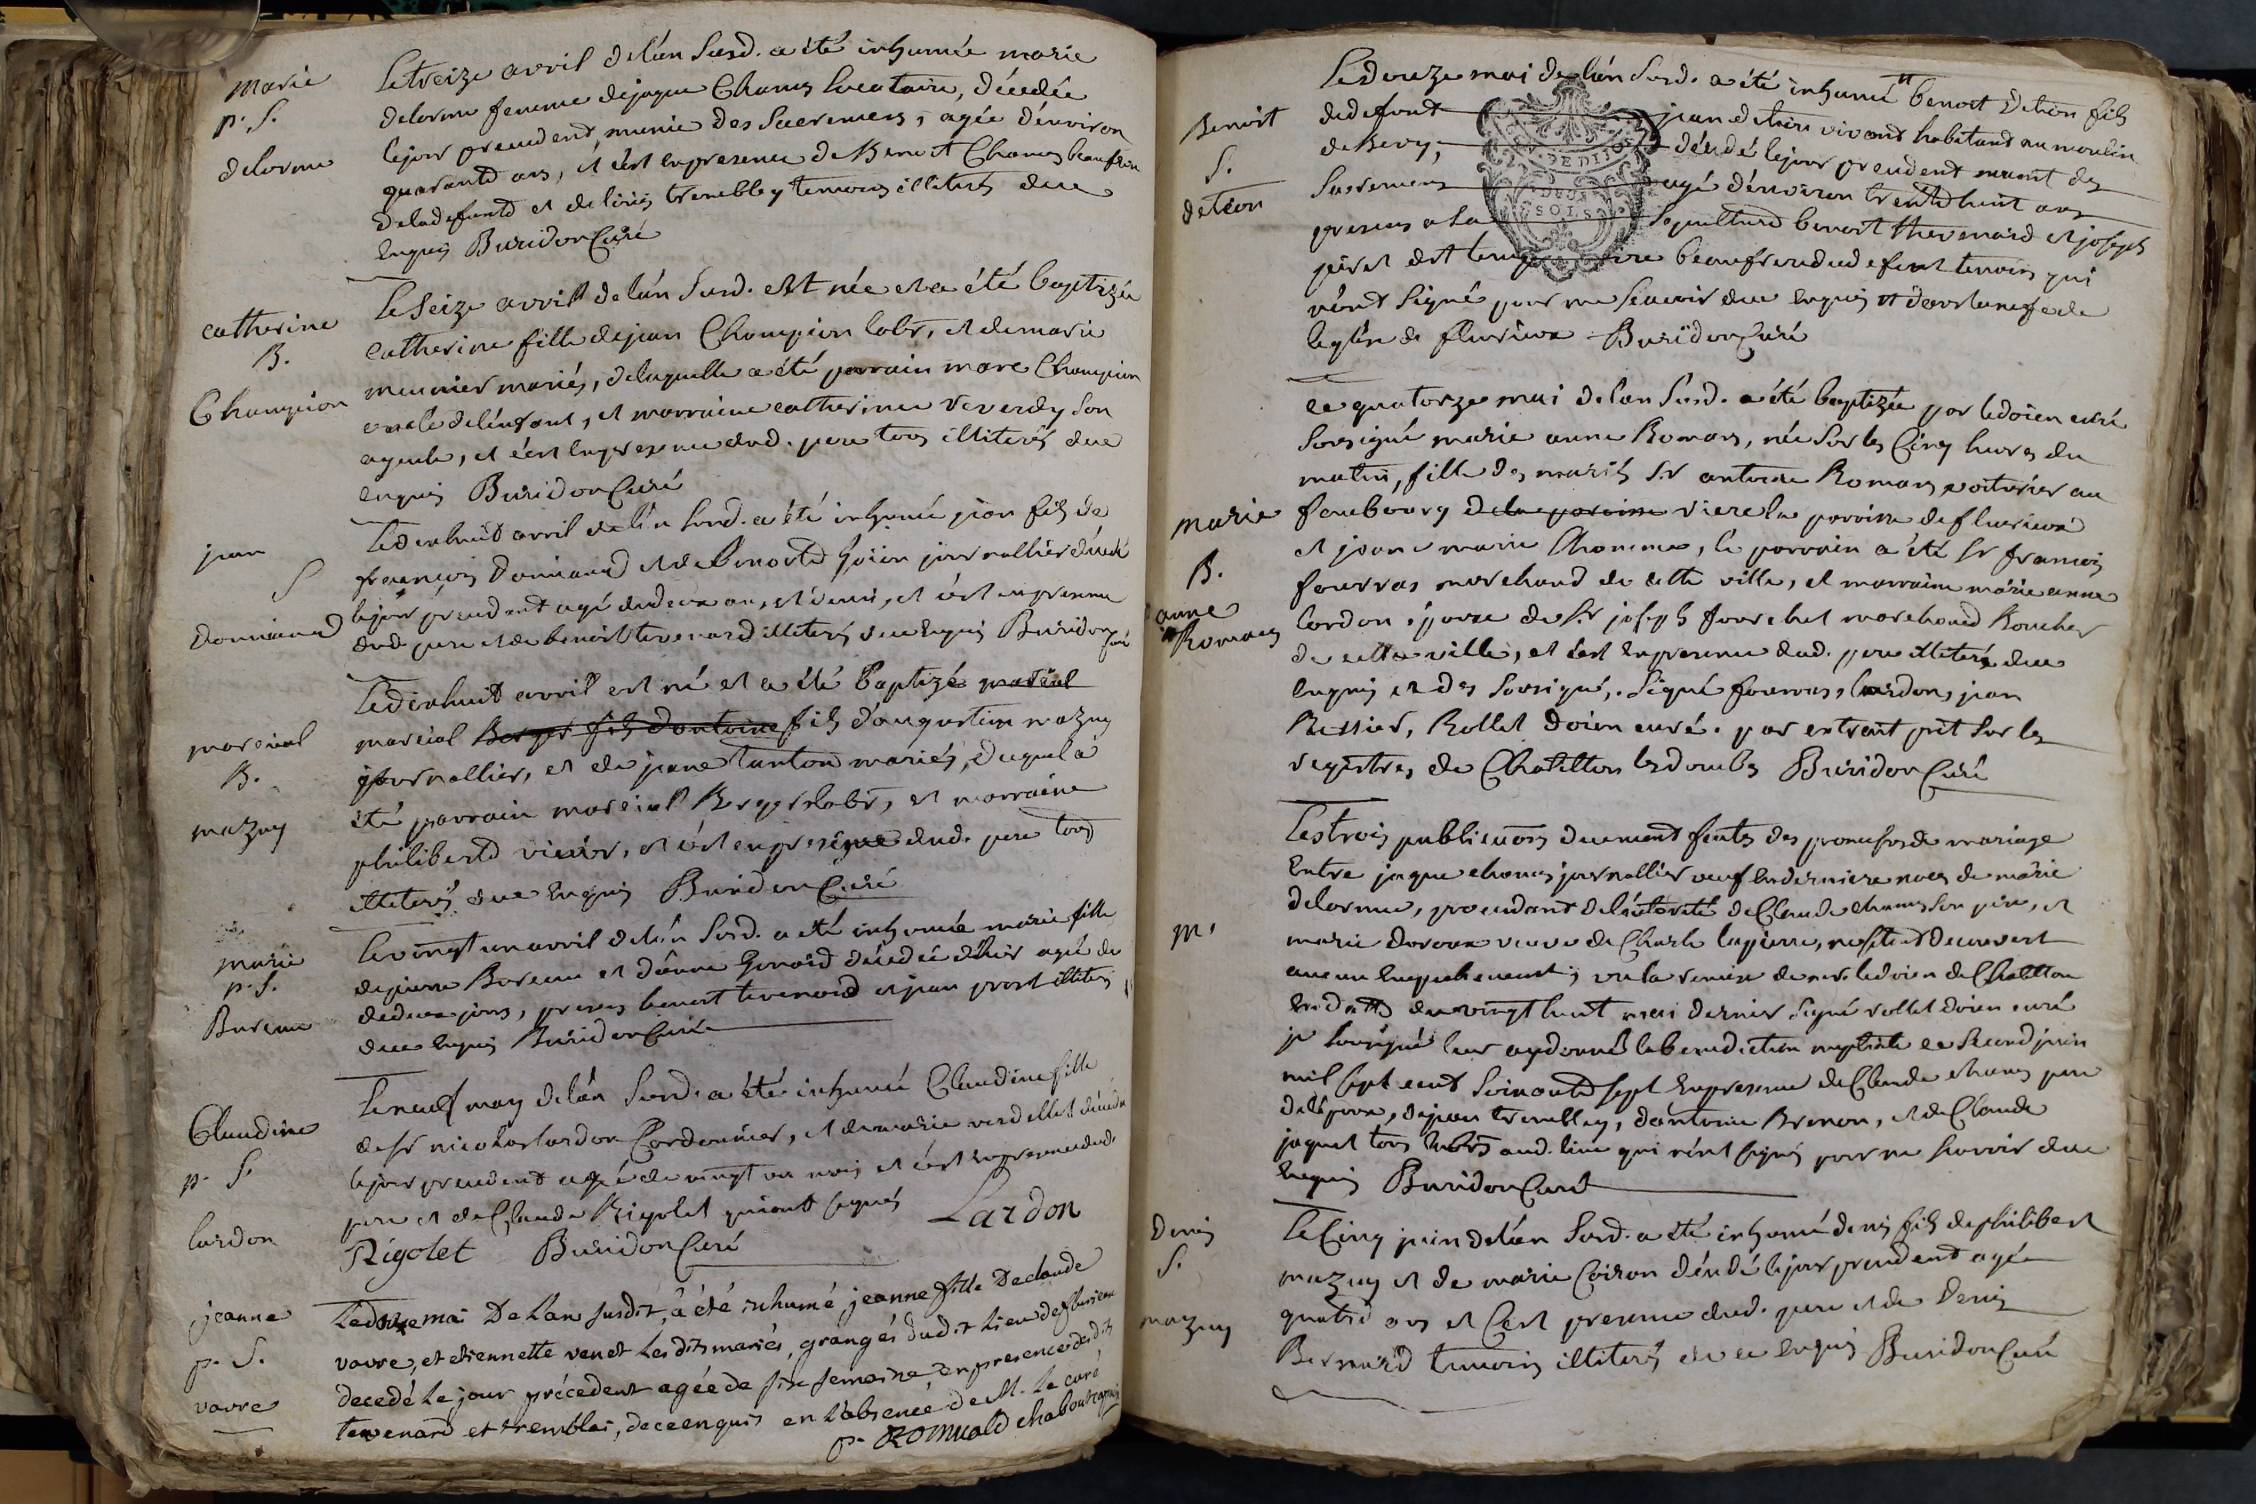 marie
p. S.
delorme
Le treize avril de l'an susd. a été inhumée marie
delorme femme de jaque Chanas locataire, décédée
le jour precedent, munie des sacremens, agée d'environ
quarante ans, et c'est en presence de Benoit Chanas beaufrere
de la defunte et de trembley temoins illiterés de ce
enquis Buridon Curé
catherine
B.
Champion
Le Seize avril de l'an susd. est née et a été baptizée
catherine fille de jean Champion labr, et de marie
meunier mariés, de laquelle a été parrain marc Champion
oncle de l'enfant, et marraine catherine son
ayeule, et c'est en presence dud. pere tous illiterés de ce
enquis Buridon Curé
jean
S
Domiand
Le dixhuit avril de l'an susd. a été inhumé jean fils de
françois Domiand et de Benoite journallier décédé
le jour precedent agé de deux ans et demi, et c'est en presence
dud. pere et de benoit tevenard illiterés de ce enquis Buridon
Curé
marcial
B.
mazuy
Le dixhuit avril est né et a été baptizé marcial
marcial Berger fils d'antoine fils d'augustin mazuy
journallier, et de jeane tanton mariés, duquel a
été parrain marcial Berger labr, et marraine
philiberte, et c'est en presence dud. pere tous
illiterés de ce enquis Buridon Curé
marie
p. S.
Bureau
Le vingt un avril de l'an susd. a été inhumée marie fille
de pierre Bureau et d'anne décédée d'hier agée de
de deux jours, presens benoit tevenard et jean prost illiterés
de ce enquis Buridon Curé
Claudine
p. S.
lardon
Le neuf may de l'an susd. a été inhumée Claudine fille
de sr nicolas lardon Cordonnier, et de marie décédée
le jour precedent agée de vingt un mois et c'est en presence dud.
pere et de Claude Rigolet qui ont signés Lardon
Rigolet Buridon Curé
jeanne
p. S.
vavre
Le mai De l'an susdit, a été inhumé jeanne fille De claude
vavre, et etiennette venet Les dits mariés, grangés dudit Lieu de fleurieux
decedé Le jour précedent agée de six semaine, en presence desdits
tevenard et tremblei, de ce enquis en l'absence de M. Le curé
p. Romuald
Benoit
S.
detion
Le douze mai de l'an susd. a été inhumé benoit detion fils
de defunt jean detion vivant habitant au moulin
décédé le jour precedent muni des
Sacremens agé d'environ trente huit ans
presens a la sepulture benoit thevenard et joseph
beaufrere du defunt temoins qui
n'ont signé pour ne scavoir de ce enquis
l'eglise de fleurieux Buridon Curé
GEN. DE DIJON
DEUX
SOLS
marie
B.
anne
Romans
Le quatorze mai de l'an susd. a été baptizée par le doien curé
soussigné marie anne Romans, née sur les Cinq heures du
matin, fille des mariés Sr antoine Romans voiturier au
faubourg de la paroisse la paroisse de fleurieux
et jeane marie Chomme, le parrain a été Sr françois
fourras marchand de cette ville, et marraine marie anne
lardon epouse de Sr joseph marchand Boucher
de cette ville, et c'est en presence dud. pere illiteré de ce
enquis et des sousigné, signé fourras, lardon, jean
Bessier, Rollet doien curé. par extrait prit sur les
registres de Chatillon les dombes Buridon Curé
m.
Les trois publications duement faites des promesses de mariage
Entre jaque chanas journallier veuf en derniere noces de marie
delorme, procedant de l'autorité de Claude chanas son pere, et
marie veuve de Charle lapierre, ne s'etant decouvert
aucun empechement; vu la remise de mr. le doien de Chatillon
en datte du vingt huit mai dernier signé rollet doien curé
je soussigné leur ay donné la benediction nuptiale le second juin
mil sept cent soixante sept en presence de Claude chanas pere
de l'epoux, de jean trembley, d'antoine Brenon, et de Claude
jaquet tous labrs aud. lieu qui n'ont signés pour ne scavoir de ce
enquis Buridon Curé
Denis
S.
mazuy
Le Cinq juin de l'an susd. a été inhumé denis fils de philibert
mazuy et de marie Coiron décédé le jour precedent agé
quatre ans et c'est presence dud. pere et de Denis
Bernard temoins illiterés de ce enquis Buridon Curé